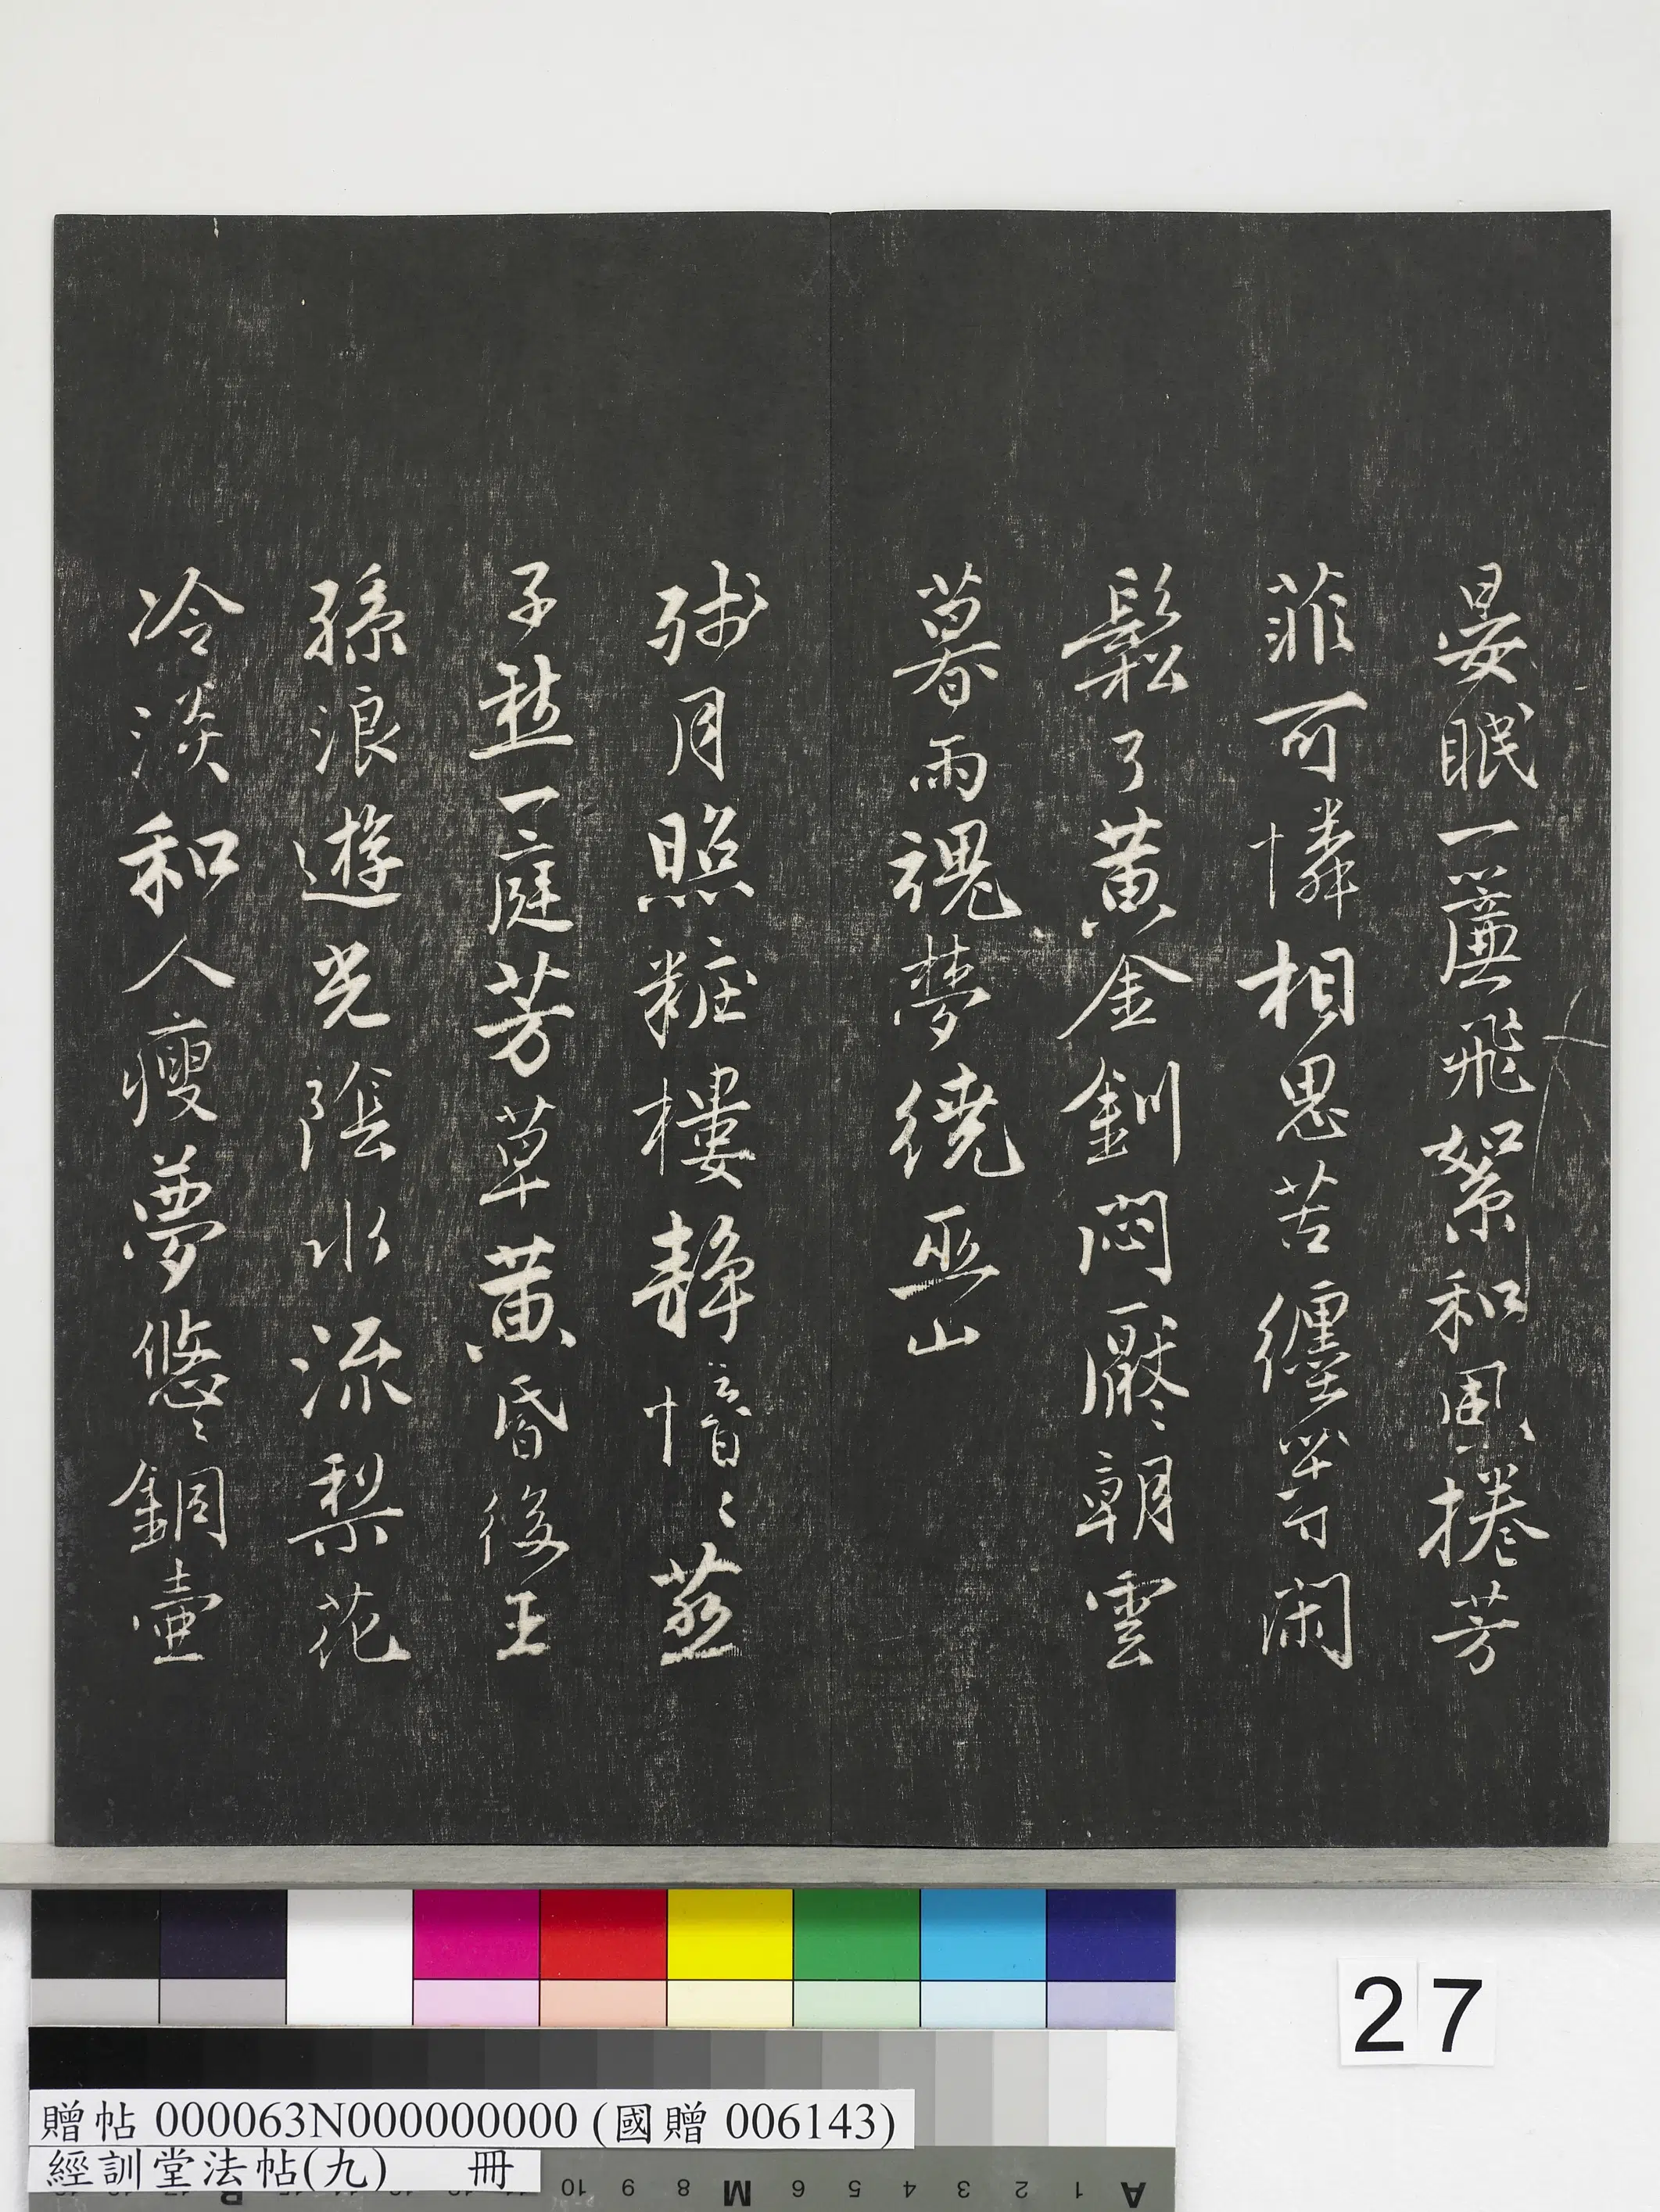 晏眠一簾飛絮和風捲芳
菲可憐相思苦纏等閑
鬆了黃金釧悶厭〻朝雲
暮雨魂夢繞巫山
殘月照粧樓靜愔〻燕
子愁一庭芳草黃昏後王
孫浪遊光陰水流梨花
冷淡和人瘦夢悠〻銅壺
27
贈帖 000063N000000000 (國贈 006143)
經訓堂法帖(九) 冊
10 9 8 M 6 5 4 3 2 1 A